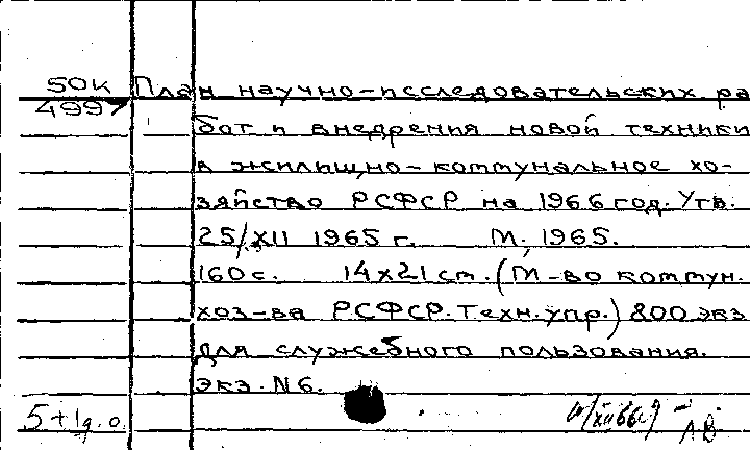 50к План научно-исследовательских ра
4997 бот и внедрения новой техники
в жилищно-коммунальное хо-
зяйство РСФСР на 1966 год. Утв.
25/XII 1965 г. М., 1965.
160 с. 14х21 см. (М-во коммун.
хоз-ва РСФСР. Техн. упр.) 800 экз
для служебного пользования.
экз. N6.
5+1д.о.